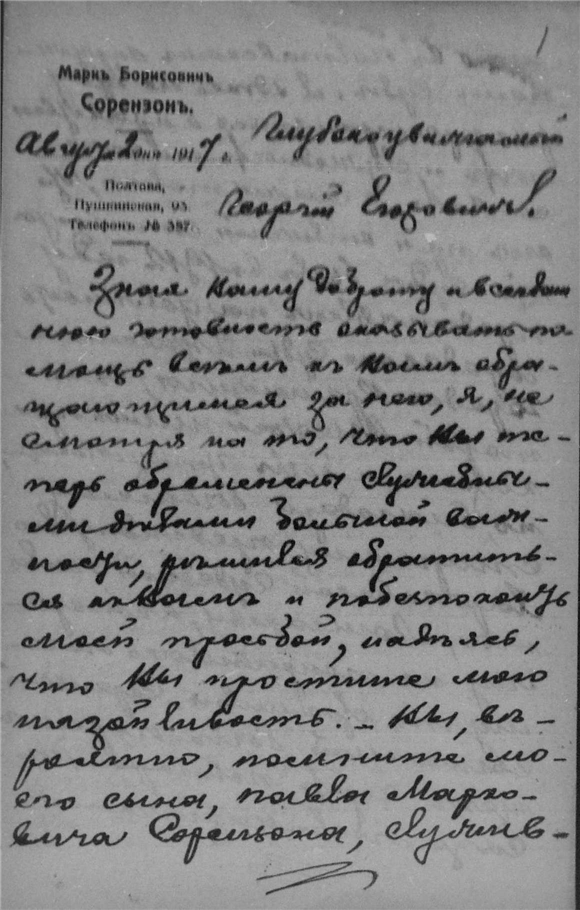 1
Маркъ Борисовичъ
Сорензонъ.
Глубокоуважаемый
Августа 2 дня 1917 г.
Полтава,
Пушкинская, 93.
Телефонъ № 387.
Георгій Егоровичъ.
Зная Вашу доброту и всегдаш
нюю готовность оказывать по
мощь всѣмъ къ Вамъ обра-
щающимся за нею, я, не
смотря на то, что Вы те-
перь обременены служебны-
ми дѣлами большой важ-
ности, рѣшился обратить-
ся къ Вамъ и побезпокоить
моей просьбой, надѣясь,
что Вы простите мою
назойливость. – Вы, вѣ-
роятно, помните мо-
его сына, Павла Марко-
вича Сорензона, служив-